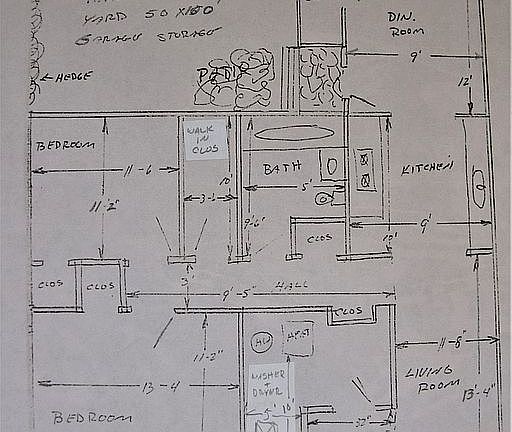 YARD 50 X100'
GARAGE STORAGE
DIN.
ROOM
9'
HEDGE
12'
BEDROOM
WALK
IN
CLOS
11-6
3-6
10'
BATH
5'
KITCHEN
11'-2"
9'-6"
CLOS
9'
10'
CLOS
CLOS
3'
9'-5"
HALL
CLOS
11-2"
HW
HEAT
11-8"
LIVING
ROOM
13'-4"
13-4
WASHER
+
DRYER
5'
10'
BEDROOM